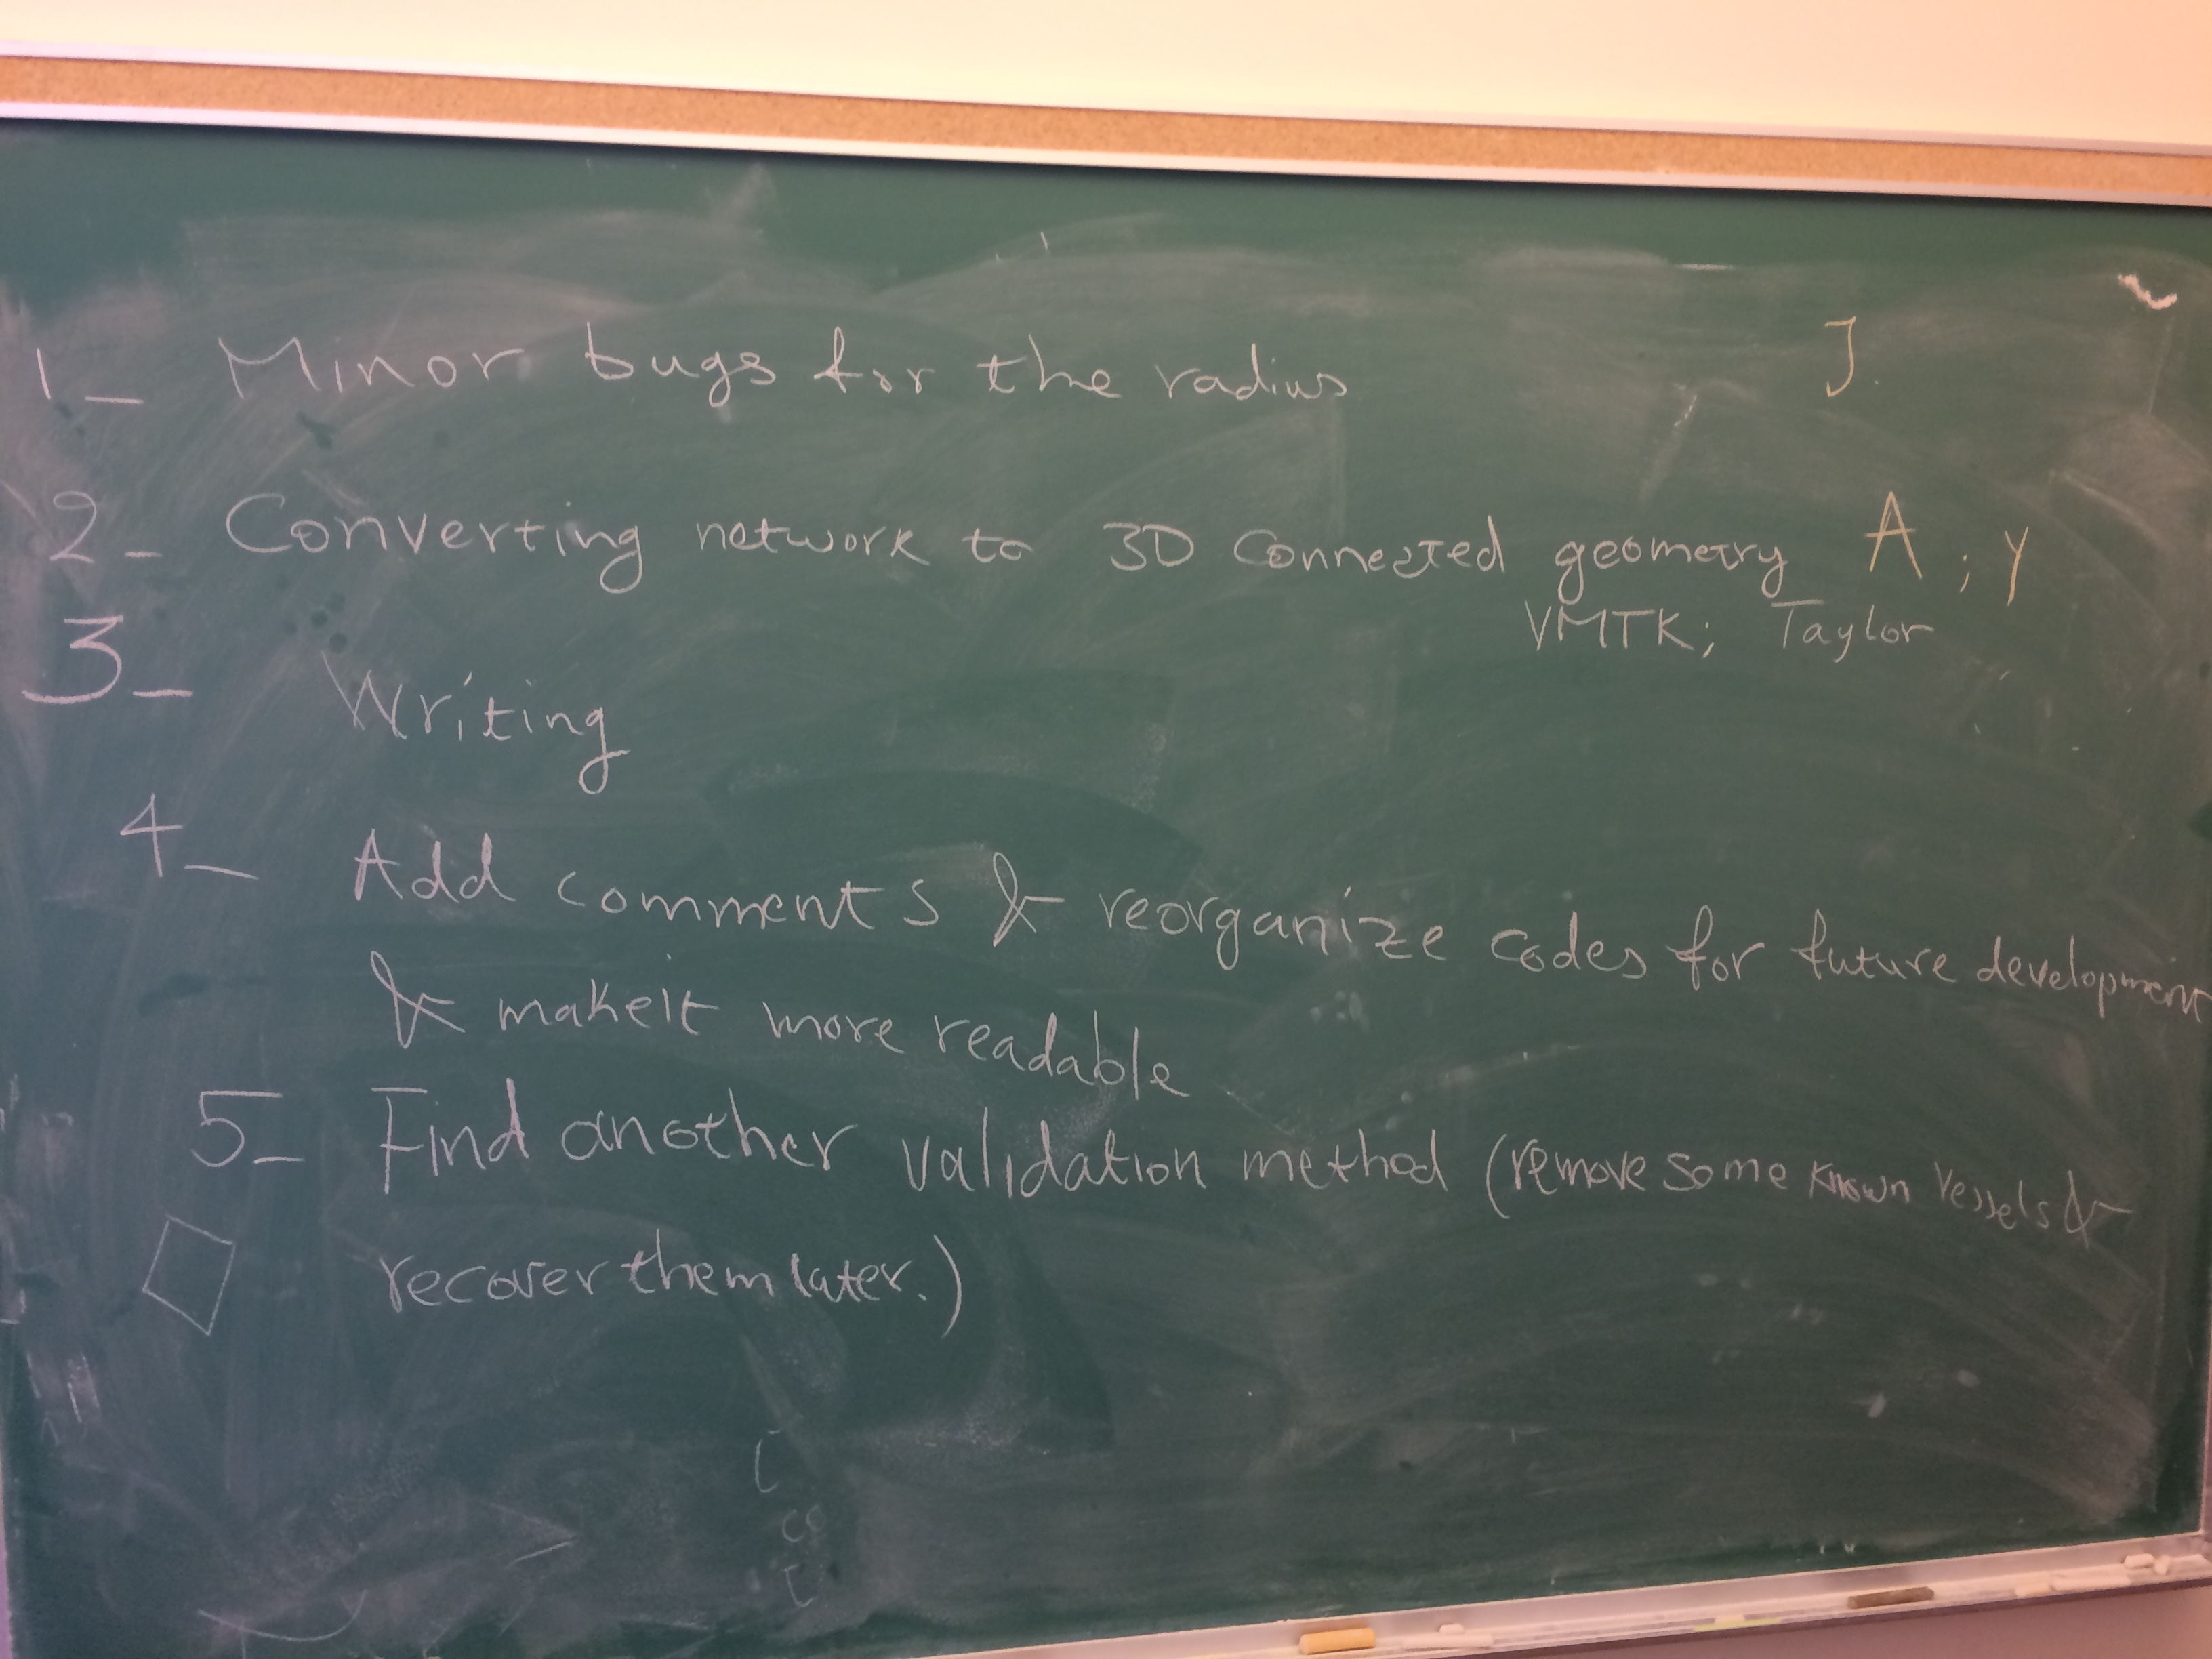 1_ Minor bugs for the radius J.
2_ Converting network to 3D connected geometry A ; Y
VMTK; Taylor
3_ Writing
4_ Add comments & reorganize codes for future development
& make it more readable
5_ Find another validation method (remove some known vessels &
recover them later.)